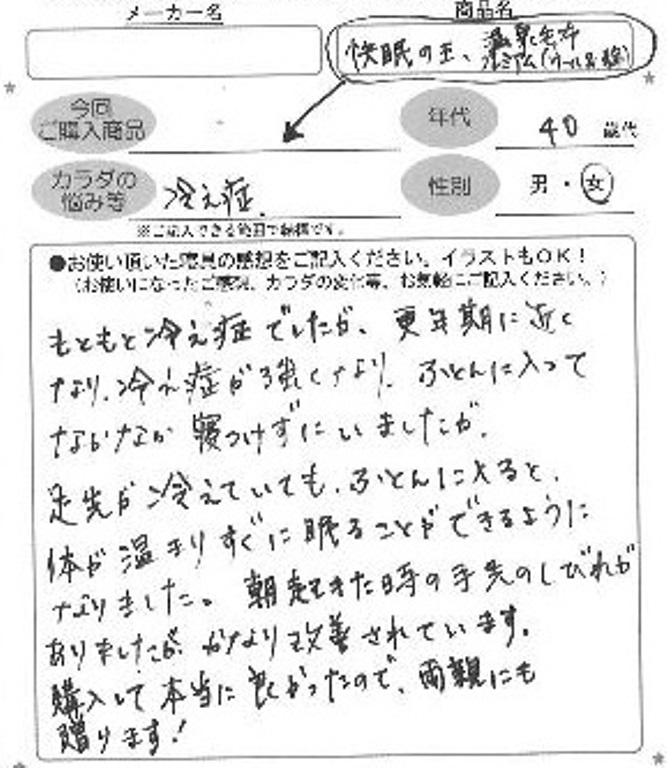 メーカー名
商品名
快眠の王、温泉毛布
プレミアム(ウール&綿)
今回
ご購入商品
年代
40 歳代
カラダの
悩み等
冷え症
性別
男・女
※ご記入できる範囲で結構です。
●お使い頂いた寝具の感想をご記入ください。イラストもOK!
(お使いになったご感想、カラダの変化等、お気軽にご記入ください。)
もともと冷え症でしたが、更年期に近く
なり、冷え症が強くなり、ふとんに入って
なかなか寝つけずにいましたが、
足先が冷えていても、ふとんに入ると、
体が温まりすぐに眠ることができるように
なりました。朝起きた時の手先のしびれが
ありましたが、かなり改善されています。
購入して本当に良かったので、両親にも
贈ります!